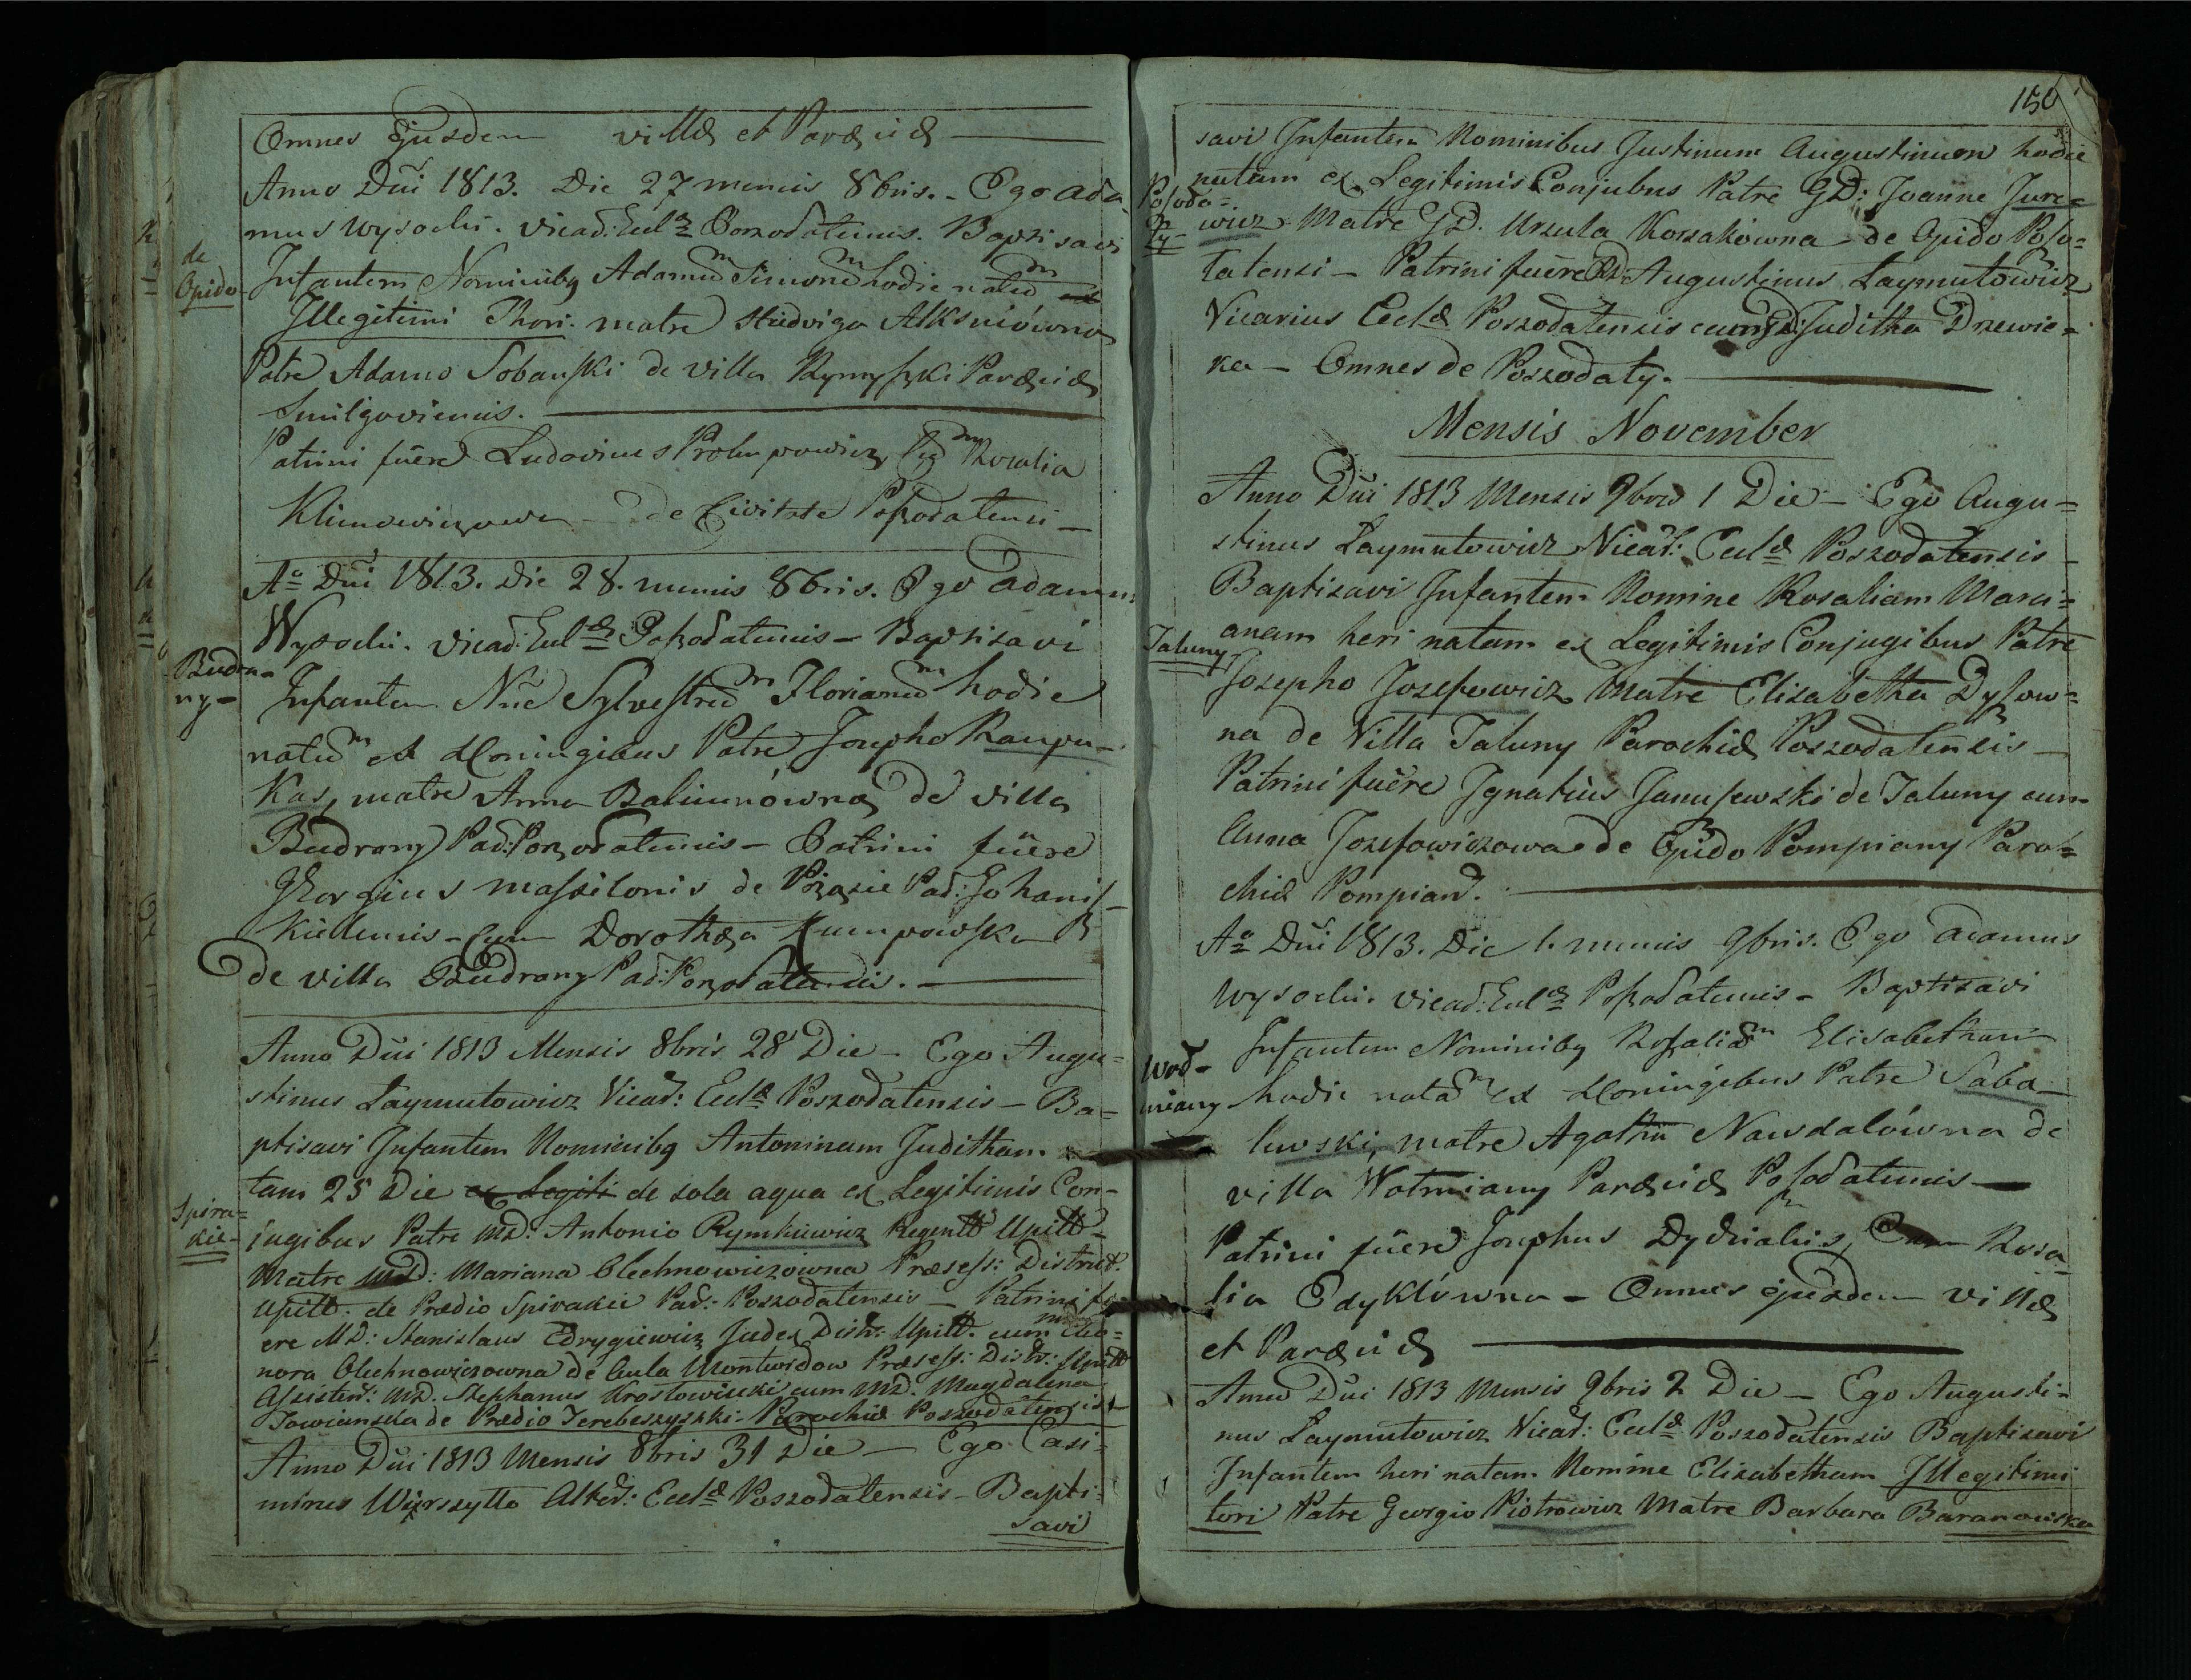 Omnes Ejusdem villæ et Paræciæ
Anno Dñi 1813. Die 27 mensis 8bris. Ego Ada
mus Wysocki. Vicað: Eulæ Poszodatensis. Baptisavi
de
Opido
Infantem Nominibg Adamum Simonem hodie natum
Illegitimi Thori. matre Hedviga Alksniówna
Patre Adamo Sobanski de villa Paræciæ
Smilgoviensis.
Patrini fuere Ludovicus cum Rosalia
Klimowiczowa de Civitate Poszodatensi
Ao Dñi 1813. Die 28. mensis 8bris. Ego Adamus
Wysocki. Vicað: Eulæ Poszodatensis - Baptisavi
Budra-
ny-
Infantem Nñe Sylvestrum Florianum hodie
natum ex Coniugibus Patre Josepho Raupu-
kas, matre Anna Baliunówna de villa
Budrany Pað: Poszodatensis - Patrini fuere
Georgius Massilonis de Pað: Johanis-
kielensis - Cum Dorothea
de villa Budrany Pað: Poszodatensis.
Anno Dñi 1813 Mensis 8bris 28 Die - Ego Augu=
stinus Laymutowicz Vicað: Ecclæ Poszodatensis - Ba=
ptisavi Infantem Nominibg Antoninam Juditham
tam 25 Die ex Legiti de sola aqua ex Legitimis Con-
Spira=
kie-
jugibus Patre MD: Antonio Rymkiewicz Regentt Upitt-
Matre MD: Mariana Olechnowiczowna Præsess: District.
Upitt. de Prædio Spirakie Pað: Poszodatensis - Patrini fu-
ere MD: Stanislaus Edrygiewicz Judex Distr: Upitt. cum MD Eleo=
nora Olechnowiczowna de Aula Montwidow Præsess: Distr: Upitt
Assisten: MD. Stephanus Kroslowiecki cum MD. Magdalena
Towianska de Prædio Terebeszyszki Parochiæ Poszodatensis
Anno Dñi 1813 Mensis 8bris 31 Die - Ego Casi-
mirus Wirszytto Altað: Ecclæ Poszodatensis - Bapti-
savi
150
savi Infantem Nominibus Justinum Augustinum hodie
Posoda=
ty-
natum ex Legitimis Conjubus Patre GD: Joanne Jure=
wicz Matre GD. Urzula Korzakowna de Opido Poso=
tatensi - Patrini fuere RD: Augustinus Laymutowicz
Vicarius Ecclæ Poszodatensis cum GD: Juditha Drzewic=
ka - Omnes de Poszodaty.
Mensis November
Anno Dñi 1813 Mensis 9bris 1 Die - Ego Augu=
stinus Laymutowicz Vicað: Ecclæ Poszodatensis
Baptisavi Infantem Nomine Rosaliam Mari=
Taluny
anam heri natam ex Legitimis Conjugibus Patre
Josepho Jozefowicz Matre Elizabetha Dysow=
na de Villa Taluny Parochiæ Poszodatensis
Patrini fuere Ignatius Janusewski de Taluny cum
Anna Jozefowiczowa de Opido Pompiany Paro=
chiæ Pompian.
Ao Dñi 1813. Die 1. mensis 9bris. Ego Adamus
Wysocki. Vicað: Eulæ Poszodatensis - Baptizavi
Wod-
miany
Infantem Nominibg Rosaliam Elisabetham
hodie natam ex Coniugibus Patre Saba-
lewski, matre Agatha Nawdalówna de
villa Wotmiany Paræciæ Posodatensis
Patrini fuere Josephus Dydzialis, Cum Rosa
lia Edyktówna - Omnes ejusdem villæ
et Paræciæ
Anno Dñi 1813 Mensis 9bris 2 Die - Ego Augusti=
nus Laymutowicz Vicað: Ecclæ Poszodatensis Baptizavi
Infantem heri natam Nomine Elizabetham Illegitimi
tori Patre Georgio Piotrowicz Matre Barbara Baranowska